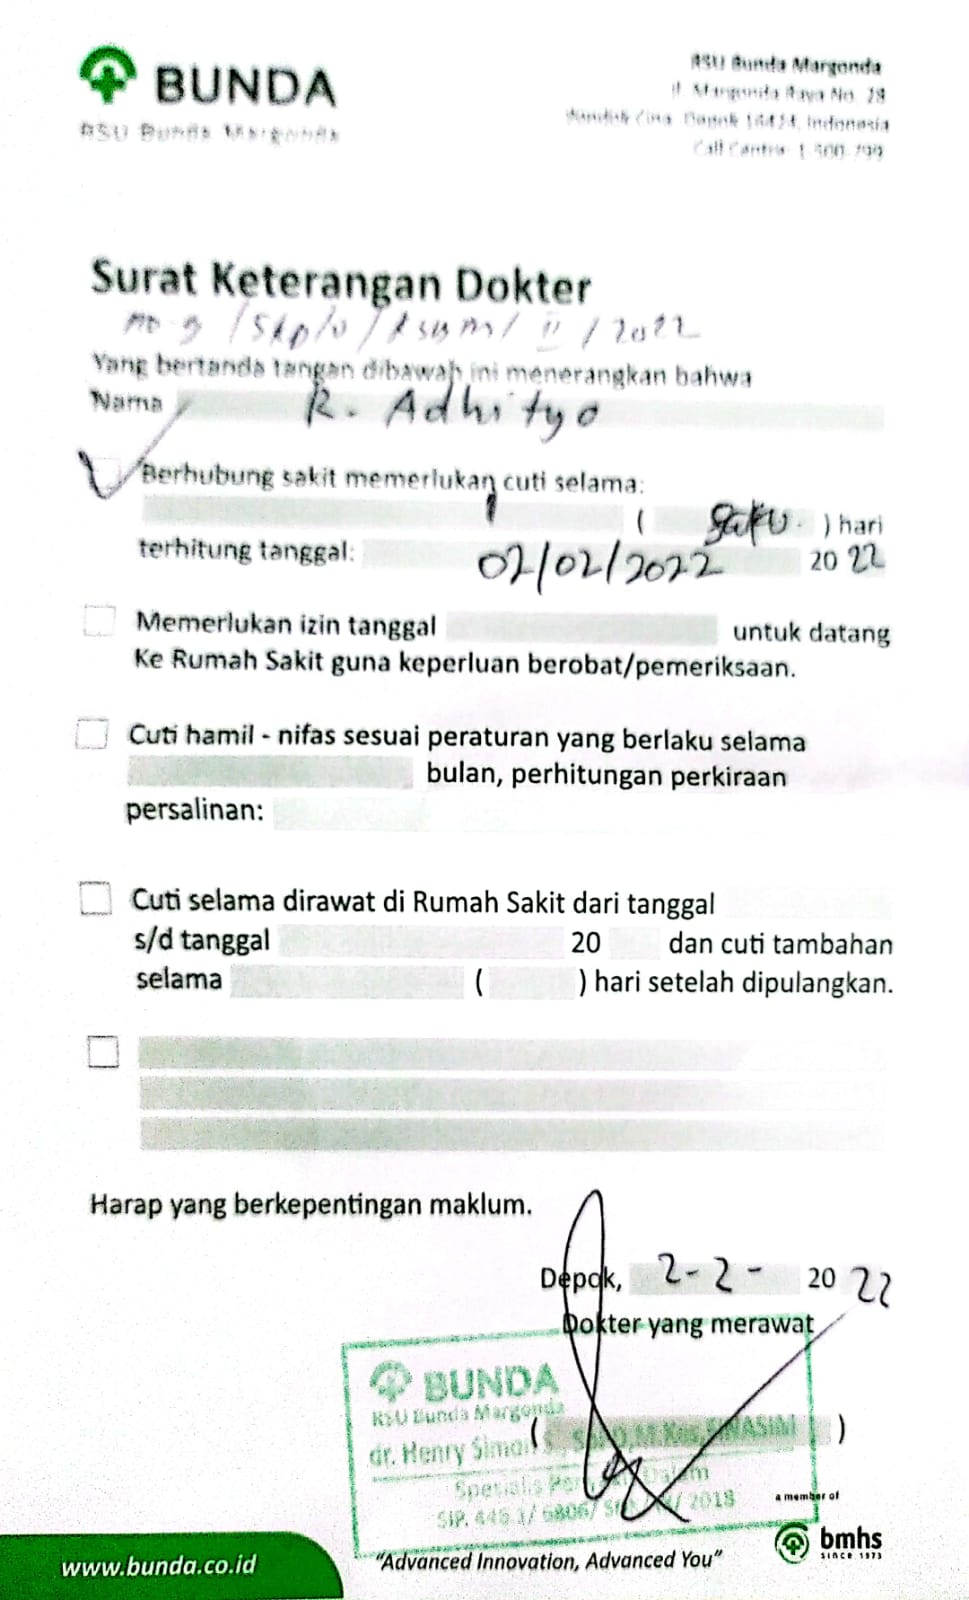 BUNDA
RSU Bunda Margonda
RSU Bunda Margonda
Jl. Margonda Raya No. 28
Pondok Cina, Depok 16424, Indonesia
Call Centre 1-500-799
Surat Keterangan Dokter
/ II / 2022
Yang bertanda tangan dibawah ini menerangkan bahwa
Nama R. Adhityo
Berhubung sakit memerlukan cuti selama:
1 ( satu ) hari
terhitung tanggal: 02/02/2022 20 22
Memerlukan izin tanggal untuk datang
Ke Rumah Sakit guna keperluan berobat/pemeriksaan.
Cuti hamil - nifas sesuai peraturan yang berlaku selama
bulan, perhitungan perkiraan
persalinan:
Cuti selama dirawat di Rumah Sakit dari tanggal
s/d tanggal 20 dan cuti tambahan
selama ( ) hari setelah dipulangkan.
Harap yang berkepentingan maklum.
Depok, 2-2- 20 22
Dokter yang merawat
BUNDA
RSU Bunda Margonda
( )
dr. Henry
Spesialis Dalam
SIP. 2018
a member of
bmhs
SINCE 1973
www.bunda.co.id
"Advanced Innovation, Advanced You"